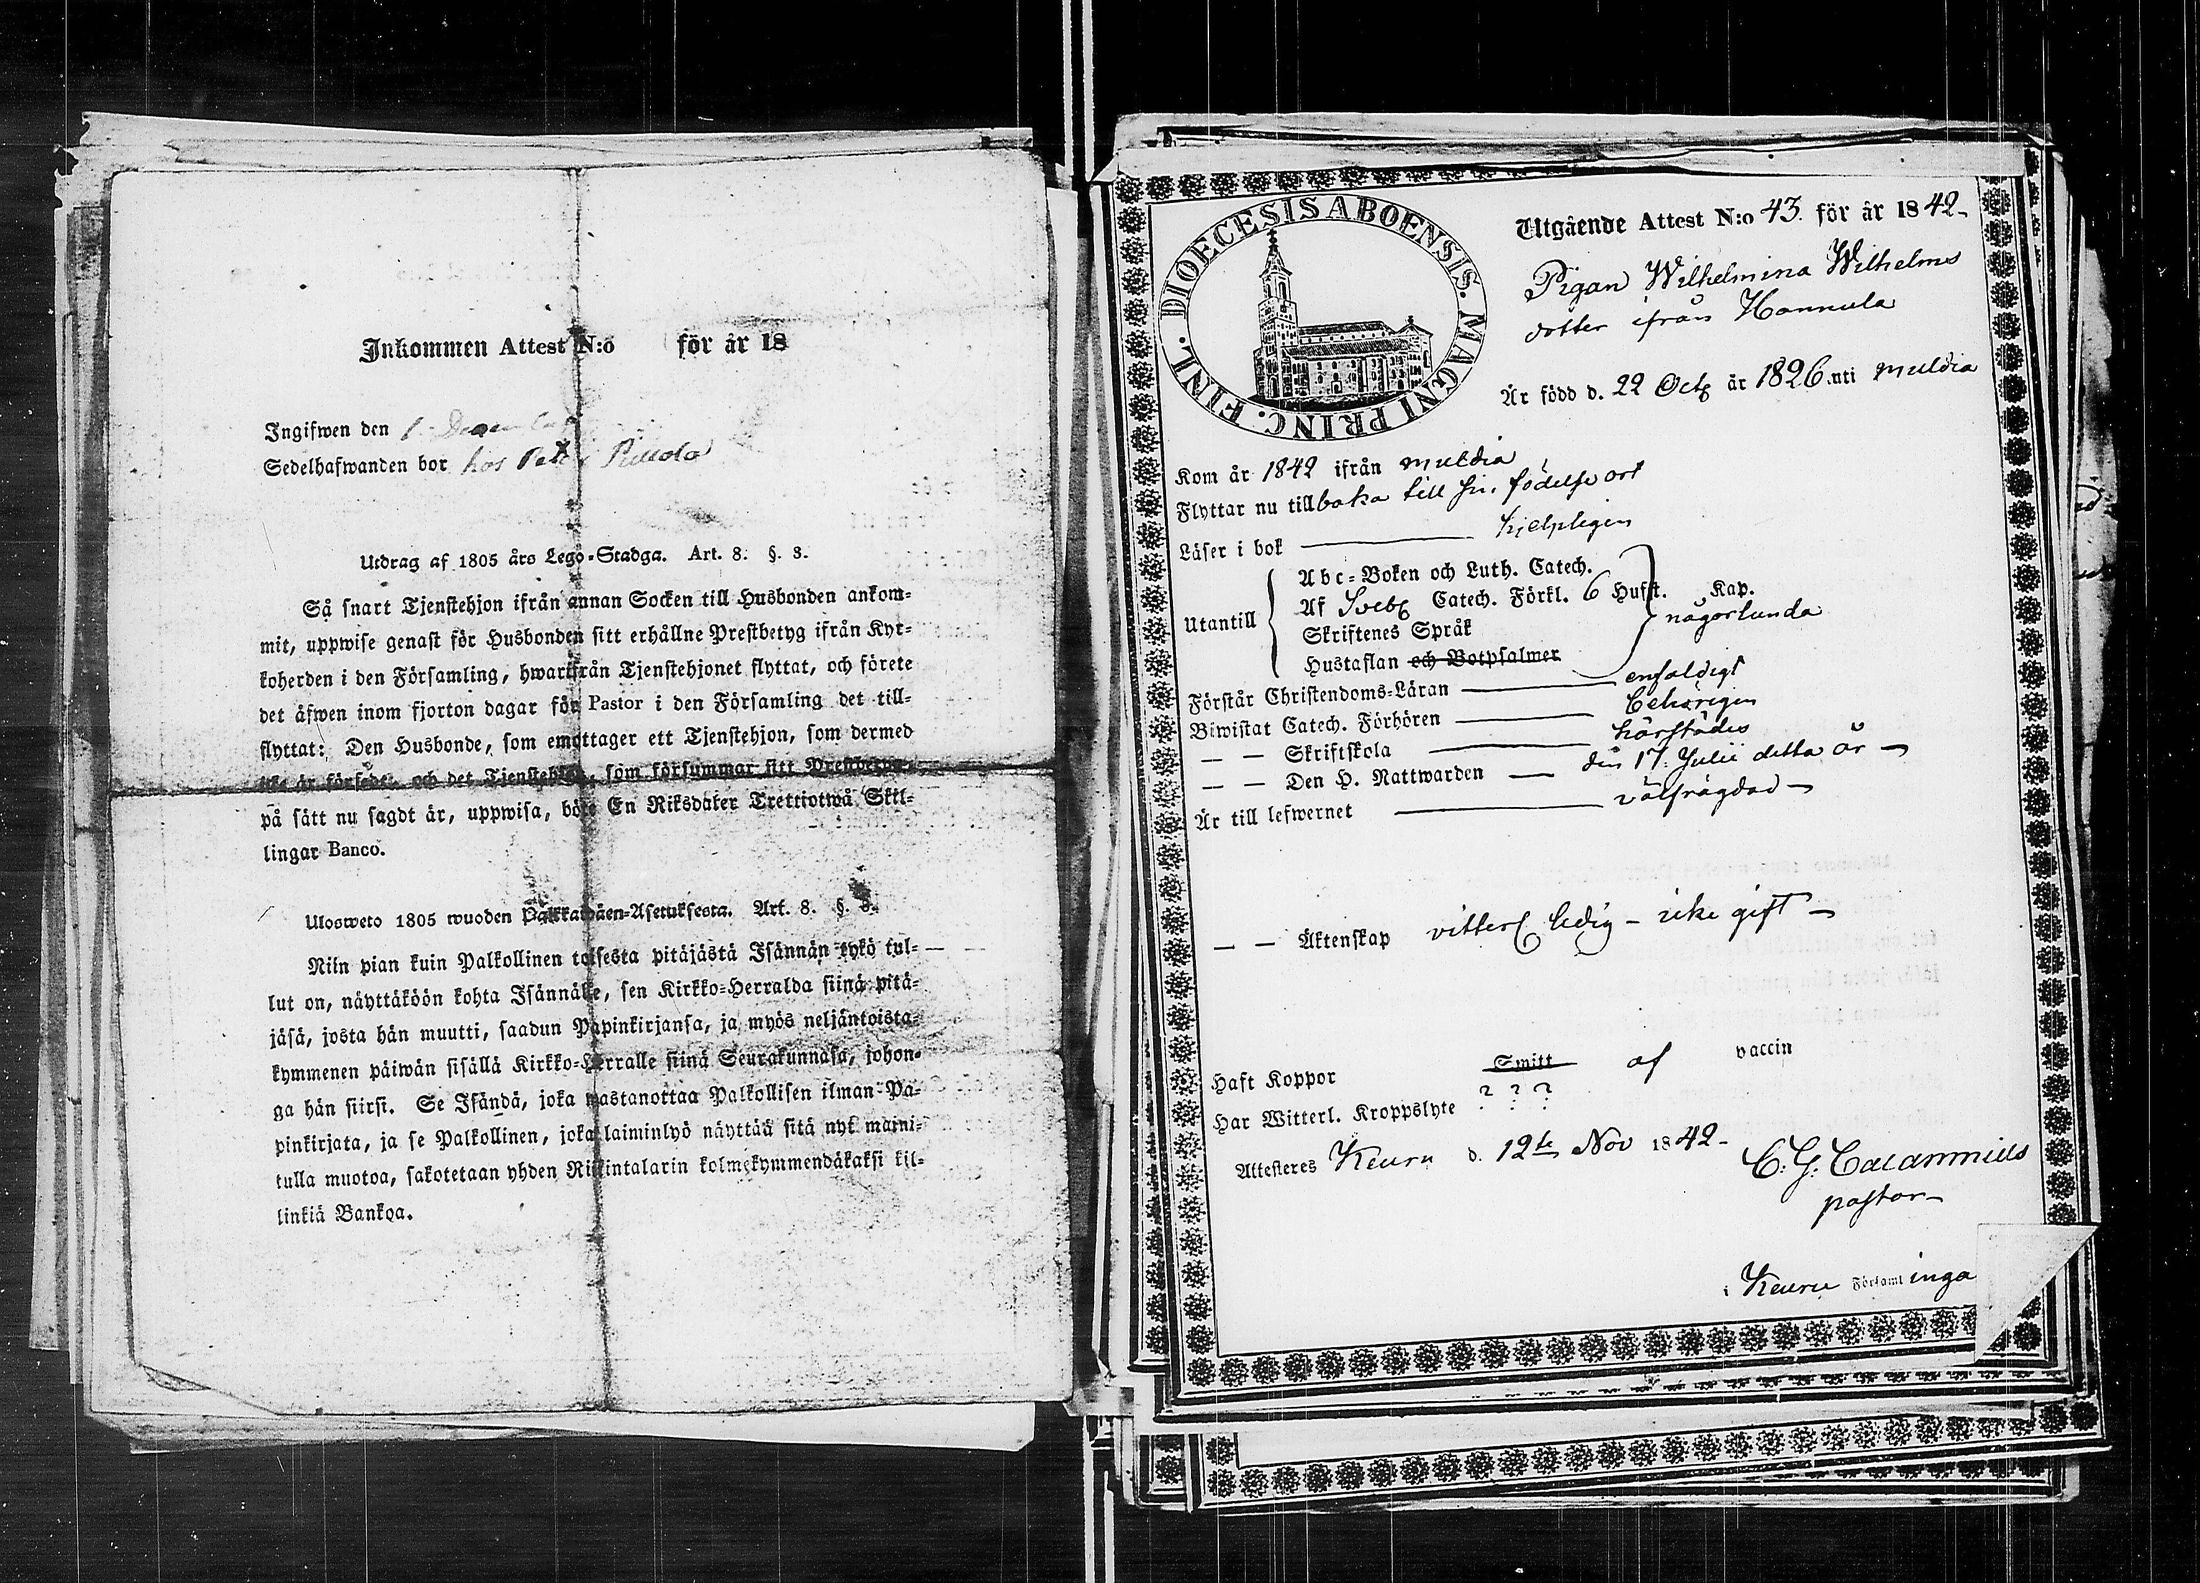 Inkommen Attest N:o för år 18
Ingifwen den 1 December
Sedelhafwanden bor hos Petter
Utdrag af 1805 års Lego-Stadga. Art. 8. §. 3.
Så snart Tjenstehjon ifrån annan Socken till Husbonden ankom-
mit, uppwise genast för Husbonden sitt erhållne Prestbetyg ifrån Kyr-
koherden i den Församling, hwartifrån Tjenstehjonet flyttat, och förete
det äfwen inom fjorton dagar för Pastor i den Församling det till-
flyttat: Den Husbonde, som emottager ett Tjenstehjon, som dermed
icke är försedt, och det Tjenstehjon, som försummar sitt Prestbetyg
på sätt nu sagdt är, uppwisa, böte En Riksdaler Trettiotwå Skil-
lingar Banco.
Ulosweto 1805 wuoden Palkkawäen-Asetuksesta. Art. 8. §. 3.
Niin pian kuin Palkollinen toisesta pitäjästä Isännän tykö tul-
lut on, näyttäköön kohta Isännälle, sen Kirkko-Herralda siinä pitä-
jäsä, josta hän muutti, saadun Papinkirjansa, ja myös neljäntoista-
kymmenen päiwän sisällä Kirkko-Herralle siinä Seurakunnasa, johon-
ga hän siirsi. Se Isändä, joka wastanottaa Palkollisen ilman Pa-
pinkirjata, ja se Palkollinen, joka laiminlyö näyttää sitä nyt maini-
tulla muotoa, sakotetaan yhden Riikintalarin kolmekymmendäkaksi kil-
linkiä Bankoa.
DIOECESIS ABOENSIS. MAGNI PRINC. FINL.
Utgående Attest N:o 43. för år 1842
Pigan Wilhelmina Wilhelms
dotter ifrån Hannula
Är född d. 22 Oct. år 1826 uti Muldia
Kom år 1842 ifrån Muldia
Flyttar nu tillbaka till sin födelse ort
Läser i bok hjelpligen
Utantill
Abc-Boken och Luth. Catech.
Af Sveb. Catech. Förkl. 6 Hufst. Kap.
Skriftenes Språk någorlunda
Hustaflan och Botpsalmer
Förstår Christendoms-Läran enfaldigt
Biwistat Catech. Förhören behörigen
— — Skriftskola härstädes
— — Den H. Nattwarden — den 17. Julii detta år —
Är till lefwernet välfrägdad —
— — Äktenskap vitterl. ledig — icke gift —
Haft Koppor Smitt af vaccin
Har Witterl. Kroppslyte ? ? ?
Attesteras Keuru d. 12te Nov 1842
C. G. Calamnius
pastor
i Keuru Församlinga